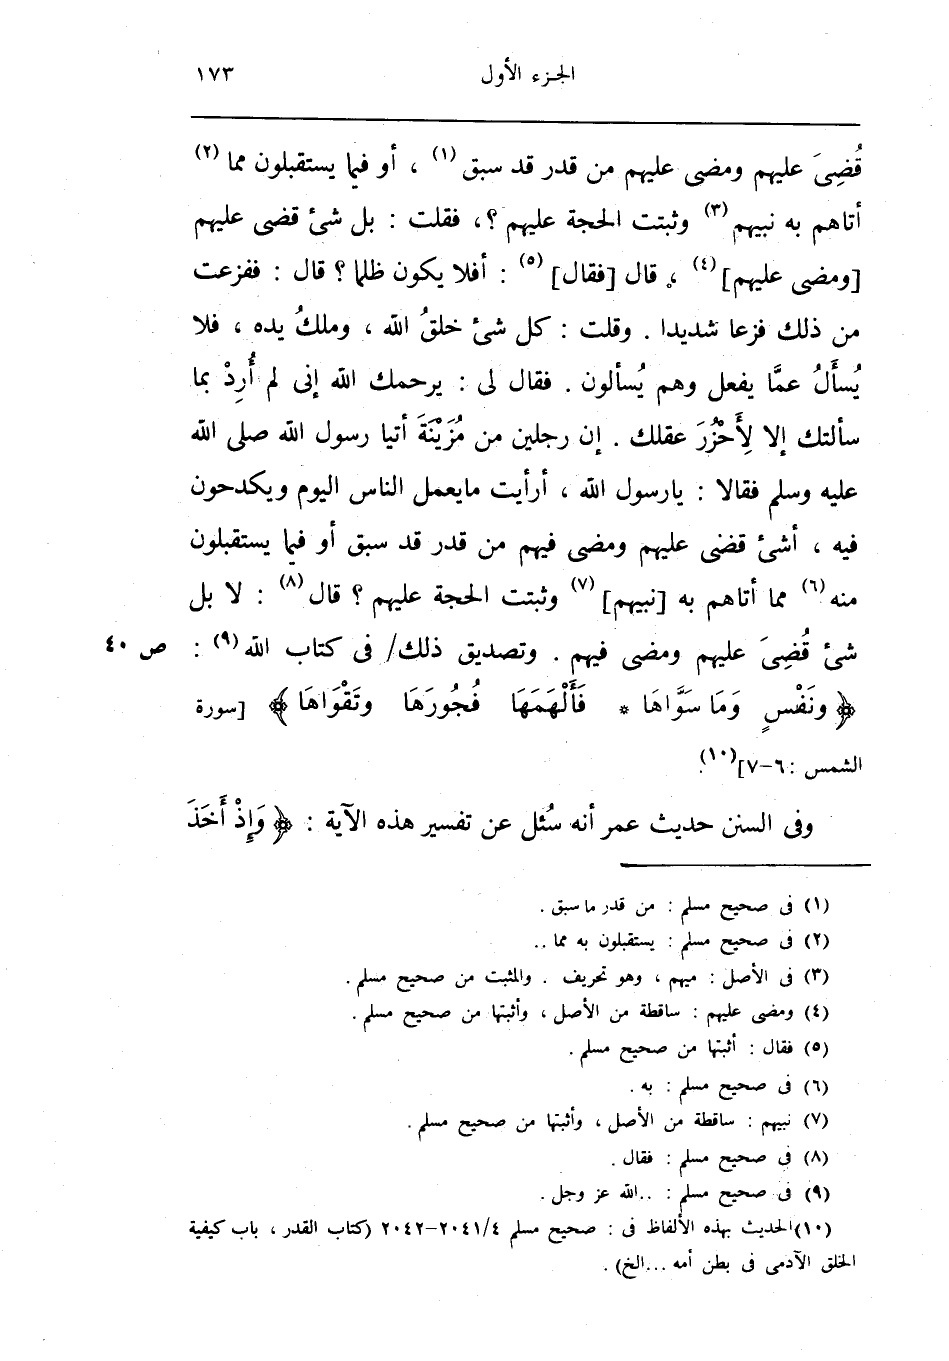 الجزء الأول ١٧٣
قُضِىَ عليهم ومضى عليهم من قدر قد سبق (١) ، أو فيما يستقبلون مما (٢)
أتاهم به نبيهم (٣) وثبتت الحجة عليهم ؟، فقلت : بل شئ قضى عليهم
[ومضى عليهم] (٤) ، قال [فقال] (٥) : أفلا يكون ظلما ؟ قال : ففزعت
من ذلك فزعا شديدا . وقلت : كل شئ خلقُ الله ، وملكُ يده ، فلا
يُسأَلُ عمَّا يفعل وهم يُسألون . فقال لى : يرحمك الله إنى لم أُرِدْ بما
سألتك إلا لِأَحْزُرَ عقلك . إن رجلين من مُزَيْنَةَ أتيا رسول الله صلى الله
عليه وسلم فقالا : يارسول الله ، أرأيت مايعمل الناس اليوم ويكدحون
فيه ، أشئ قضى عليهم ومضى فيهم من قدر قد سبق أو فيما يستقبلون
منه (٦) مما أتاهم به [نبيهم] (٧) وثبتت الحجة عليهم ؟ قال (٨) : لا بل
شئ قُضِىَ عليهم ومضى فيهم . وتصديق ذلك/ فى كتاب الله (٩) : ص ٤٠
﴿ ونَفْسٍ وَمَا سَوَّاهَا * فَأَلْهَمَهَا فُجُورَهَا وتَقْوَاهَا ﴾ [سورة
الشمس : ٦-٧] (١٠).
وفى السنن حديث عمر أنه سُئل عن تفسير هذه الآية : ﴿ وَإِذْ أَخَذَ
(١) فى صحيح مسلم : من قدر ما سبق .
(٢) فى صحيح مسلم : يستقبلون به مما ..
(٣) فى الأصل : ميهم ، وهو تحريف . والمثبت من صحيح مسلم .
(٤) ومضى عليهم : ساقطة من الأصل ، وأثبتها من صحيح مسلم .
(٥) فقال : أثبتها من صحيح مسلم .
(٦) فى صحيح مسلم : به .
(٧) نبيهم : ساقطة من الأصل ، وأثبتها من صحيح مسلم .
(٨) فى صحيح مسلم : فقال .
(٩) فى صحيح مسلم : ..الله عز وجل .
(١٠) الحديث بهذه الألفاظ فى : صحيح مسلم ٢٠٤١/٤-٢٠٤٢ (كتاب القدر ، باب كيفية
الخلق الآدمى فى بطن أمه ...الخ) .